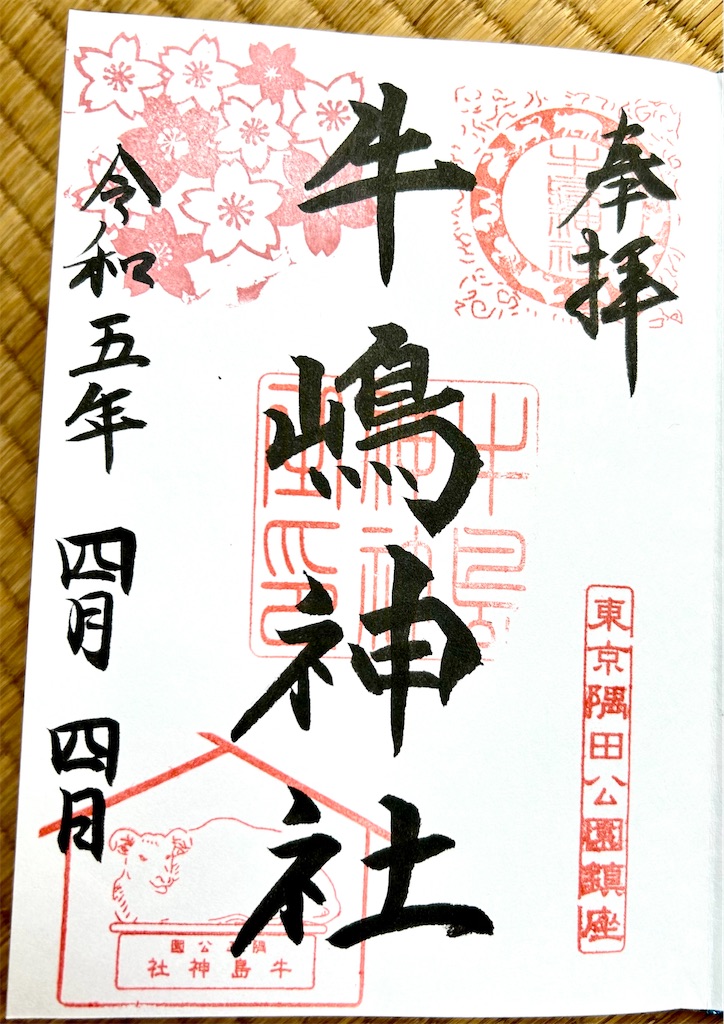 奉拝
牛嶋神社
令和五年 四月 四日
東京隅田公園鎮座
牛島神社
隅田公園
牛島神社